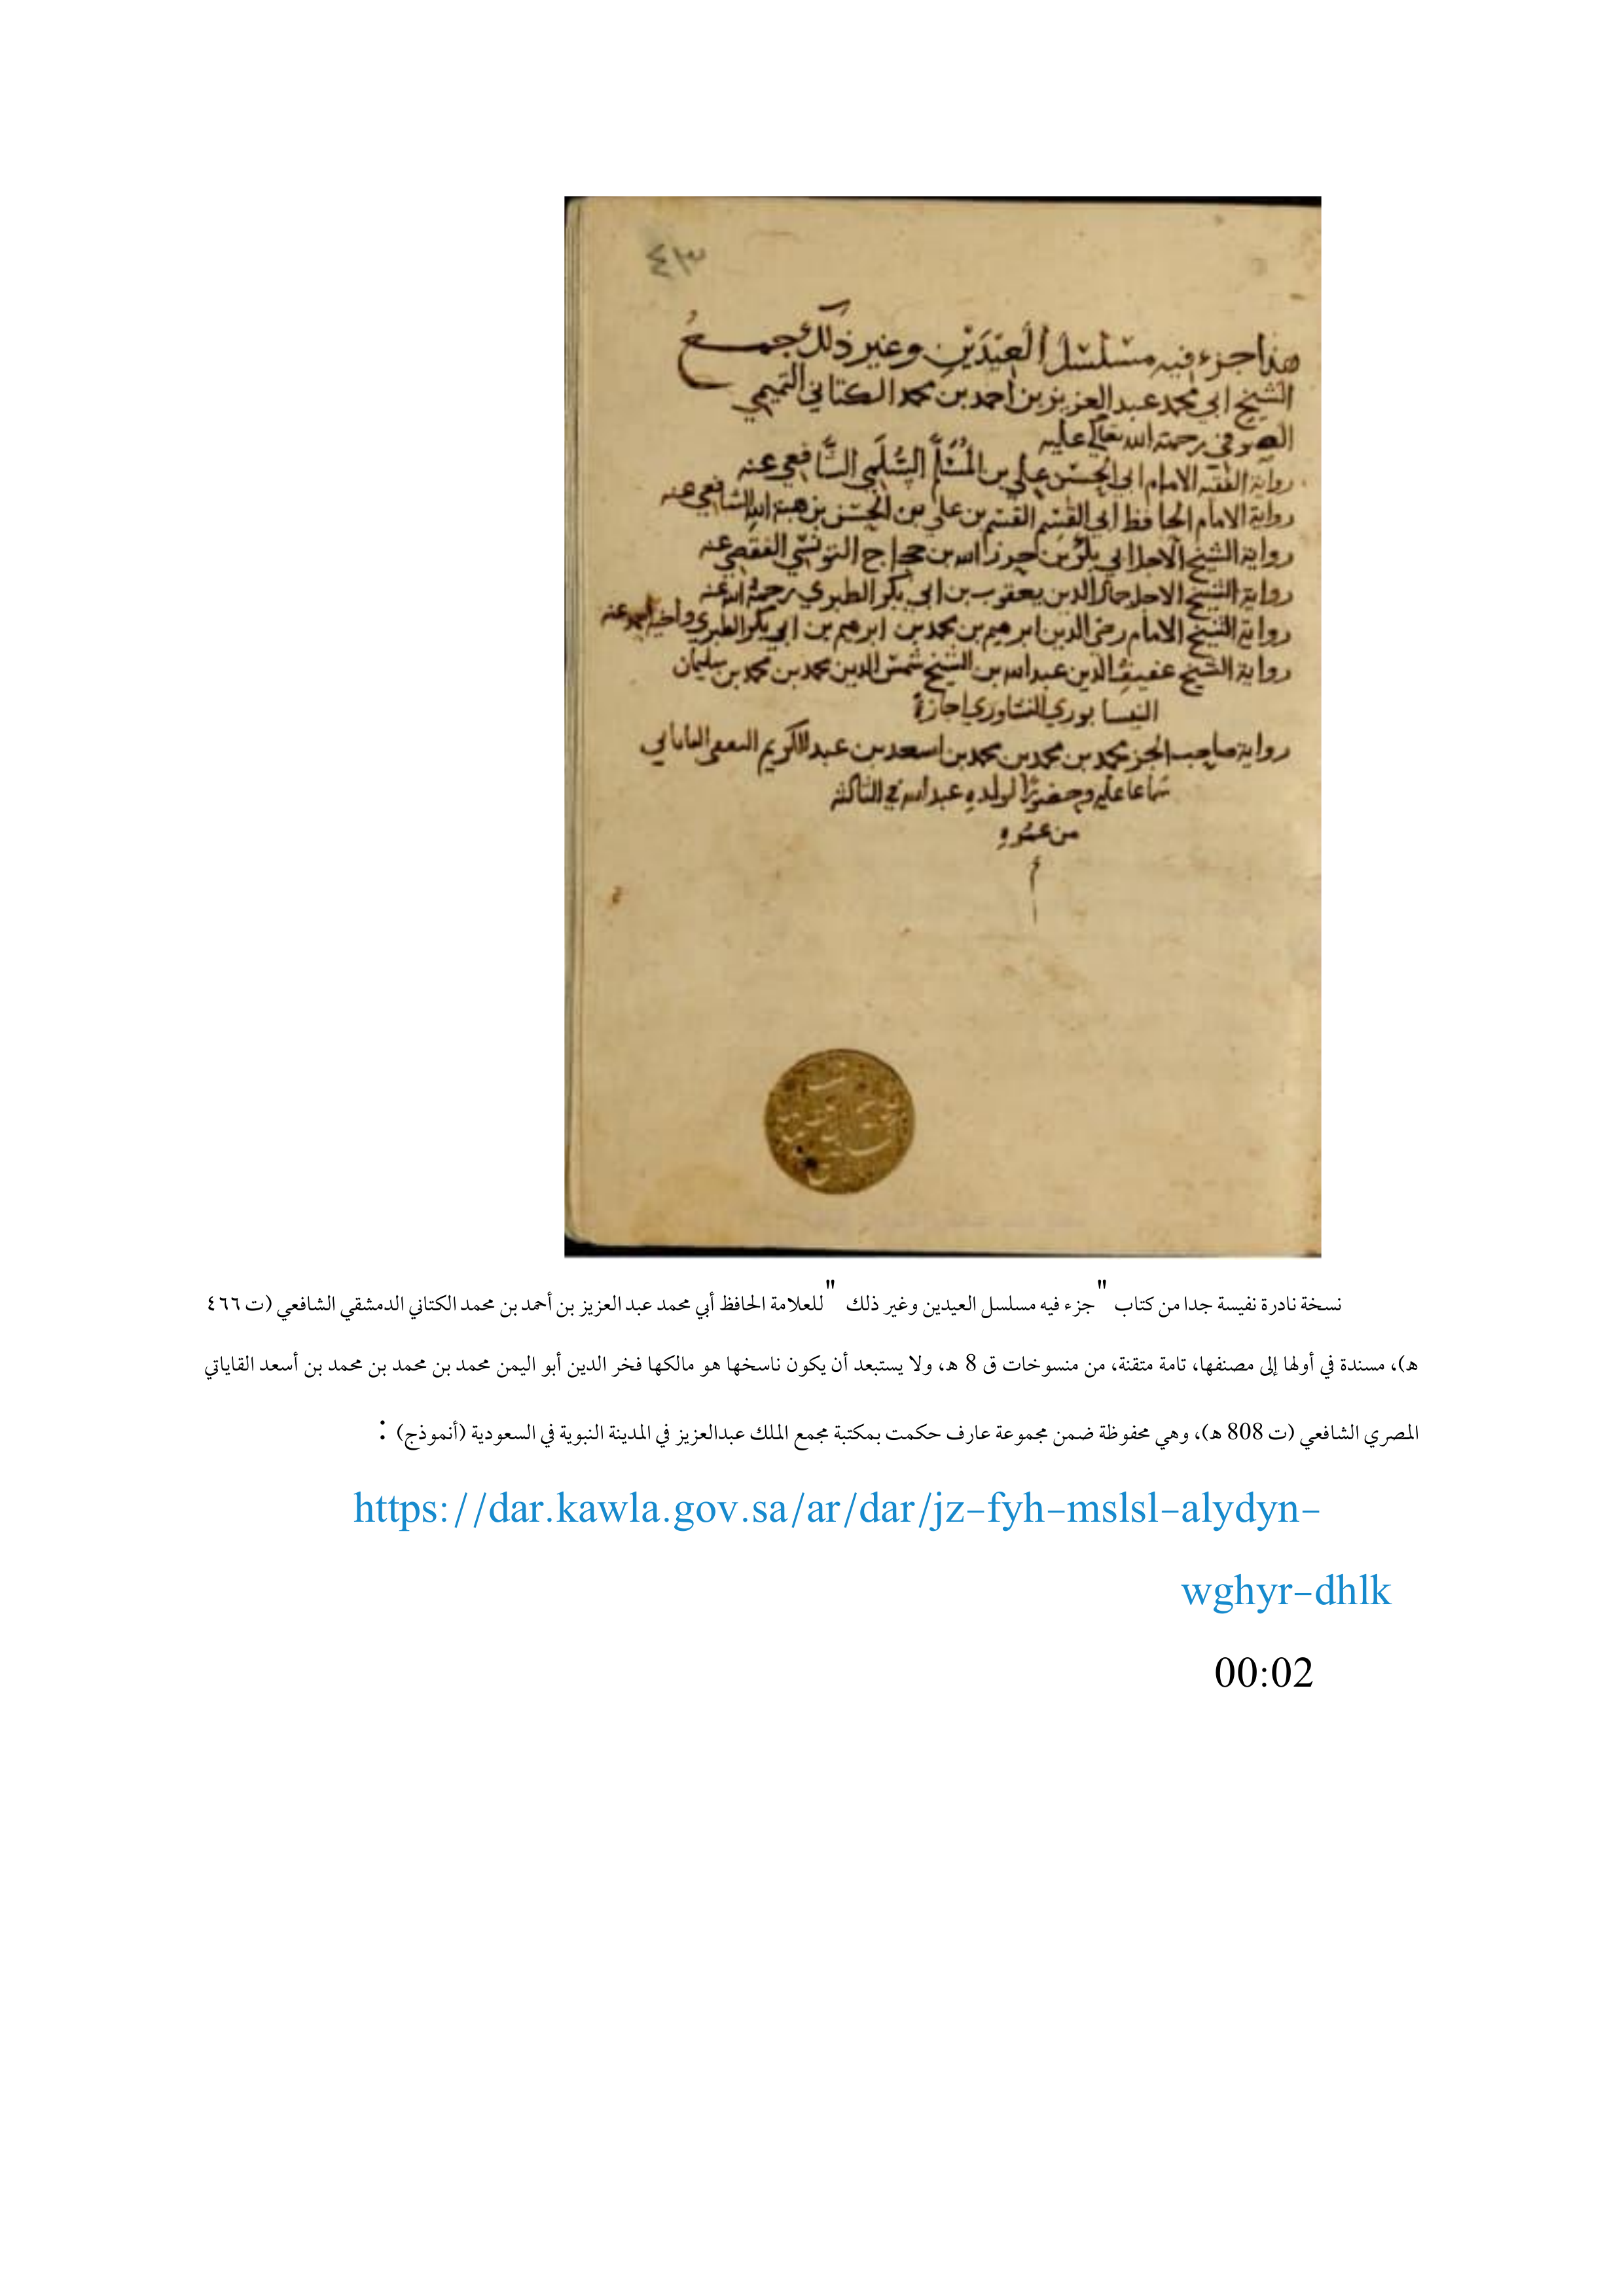 ٤٣
هذا جزء فيه مسلسل العيدين وغير ذلك جمع
الشيخ ابي محمد عبد العزيز بن احمد بن محمد الكتاني التميمي
الصوفي رحمة الله تعالى عليه
رواية الفقيه الامام ابي الحسن علي بن المسلم السلمي الشافعي عنه
رواية الامام الحافظ ابي القسم القسم بن علي بن الحسن بن هبة الله الشافعي عنه
رواية الشيخ الاجل ابي بكر بن حرز الله بن حجاج التونسي القفصي عنه
رواية الشيخ الاجل جمال الدين يعقوب بن ابي بكر الطبري رحمه الله عنه
رواية الشيخ الامام رضي الدين ابرهيم بن محمد بن ابرهيم بن ابي بكر الطبري واخيه احمد عنه
رواية الشيخ عفيف الدين عبد الله بن الشيخ شمس الدين محمد بن محمد بن سليمان
النيسابوري النشاوري اجازة
رواية صاحب الجزء محمد بن محمد بن محمد بن اسعد بن عبد الكريم الثقفي القاياتي
سماعا عليه وحضورا لولده عبد الله في الثالثة
من عمره
نسخة نادرة نفيسة جدا من كتاب "جزء فيه مسلسل العيدين وغير ذلك "للعلامة الحافظ أبي محمد عبد العزيز بن أحمد بن محمد الكتاني الدمشقي الشافعي (ت ٤٦٦
هـ)، مسندة في أولها إلى مصنفها، تامة متقنة، من منسوخات ق 8 هـ، ولا يستبعد أن يكون ناسخها هو مالكها فخر الدين أبو اليمن محمد بن محمد بن محمد بن أسعد القاياتي
المصري الشافعي (ت 808 هـ)، وهي محفوظة ضمن مجموعة عارف حكمت بمكتبة مجمع الملك عبدالعزيز في المدينة النبوية في السعودية (أنموذج) :
https://dar.kawla.gov.sa/ar/dar/jz-fyh-mslsl-alydyn-
wghyr-dhlk
00:02